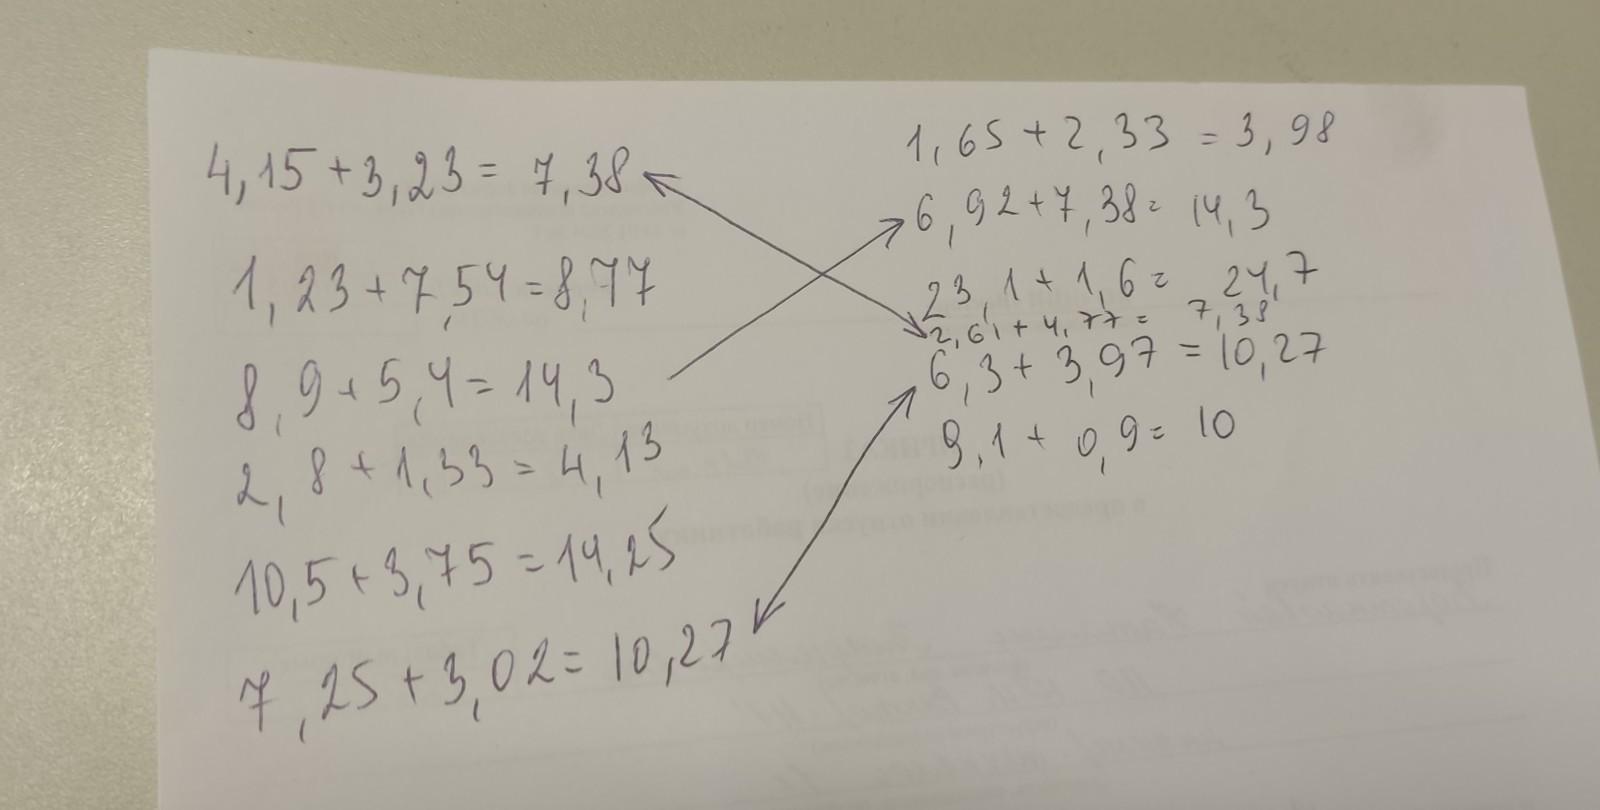 4,15 + 3,23 = 7,38
1,23 + 7,54 = 8,77
8,9 + 5,4 = 14,3
2,8 + 1,33 = 4,13
10,5 + 3,75 = 14,25
7,25 + 3,02 = 10,27
1,65 + 2,33 = 3,98
6,92 + 7,38 = 14,3
23,1 + 1,6 = 24,7
2,61 + 4,77 = 7,38
6,3 + 3,97 = 10,27
9,1 + 0,9 = 10